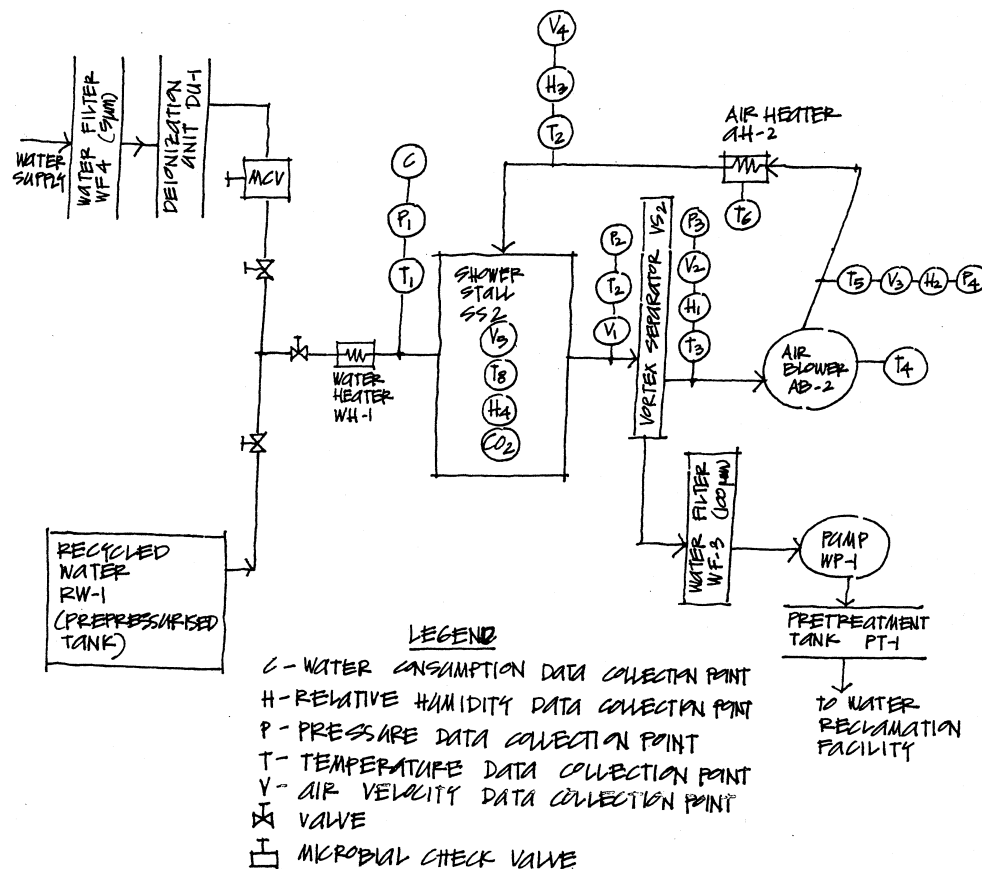 WATER SUPPLY
WATER FILTER
WF4 (5μm)
DEIONIZATION
UNIT DU-1
MCV
C
P1
T1
V4
H3
T2
AIR HEATER
AH-2
T6
SHOWER
STALL
SS2
V5
T8
H4
CO2
P2
T2
V1
VORTEX SEPARATOR VS2
P3
V2
H1
T3
T5
V3
H2
P4
AIR
BLOWER
AB-2
T4
WATER
HEATER
WH-1
RECYCLED
WATER
RW-1
(PREPRESSURISED
TANK)
WATER FILTER
WF-3 (100μm)
PUMP
WP-1
PRETREATMENT
TANK PT-1
TO WATER
RECLAMATION
FACILITY
LEGEND
C - WATER CONSUMPTION DATA COLLECTION POINT
H - RELATIVE HUMIDITY DATA COLLECTION POINT
P - PRESSURE DATA COLLECTION POINT
T - TEMPERATURE DATA COLLECTION POINT
V - AIR VELOCITY DATA COLLECTION POINT
VALVE
MICROBIAL CHECK VALVE